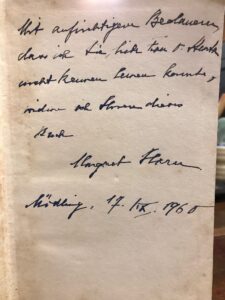 Mit aufrichtigem Bedauern,
dass ich Sie, liebe Frau
nicht kennen lernen konnte,
widme ich Ihnen dieses
Buch
Margaret
Mödling, 17. IX. 1960